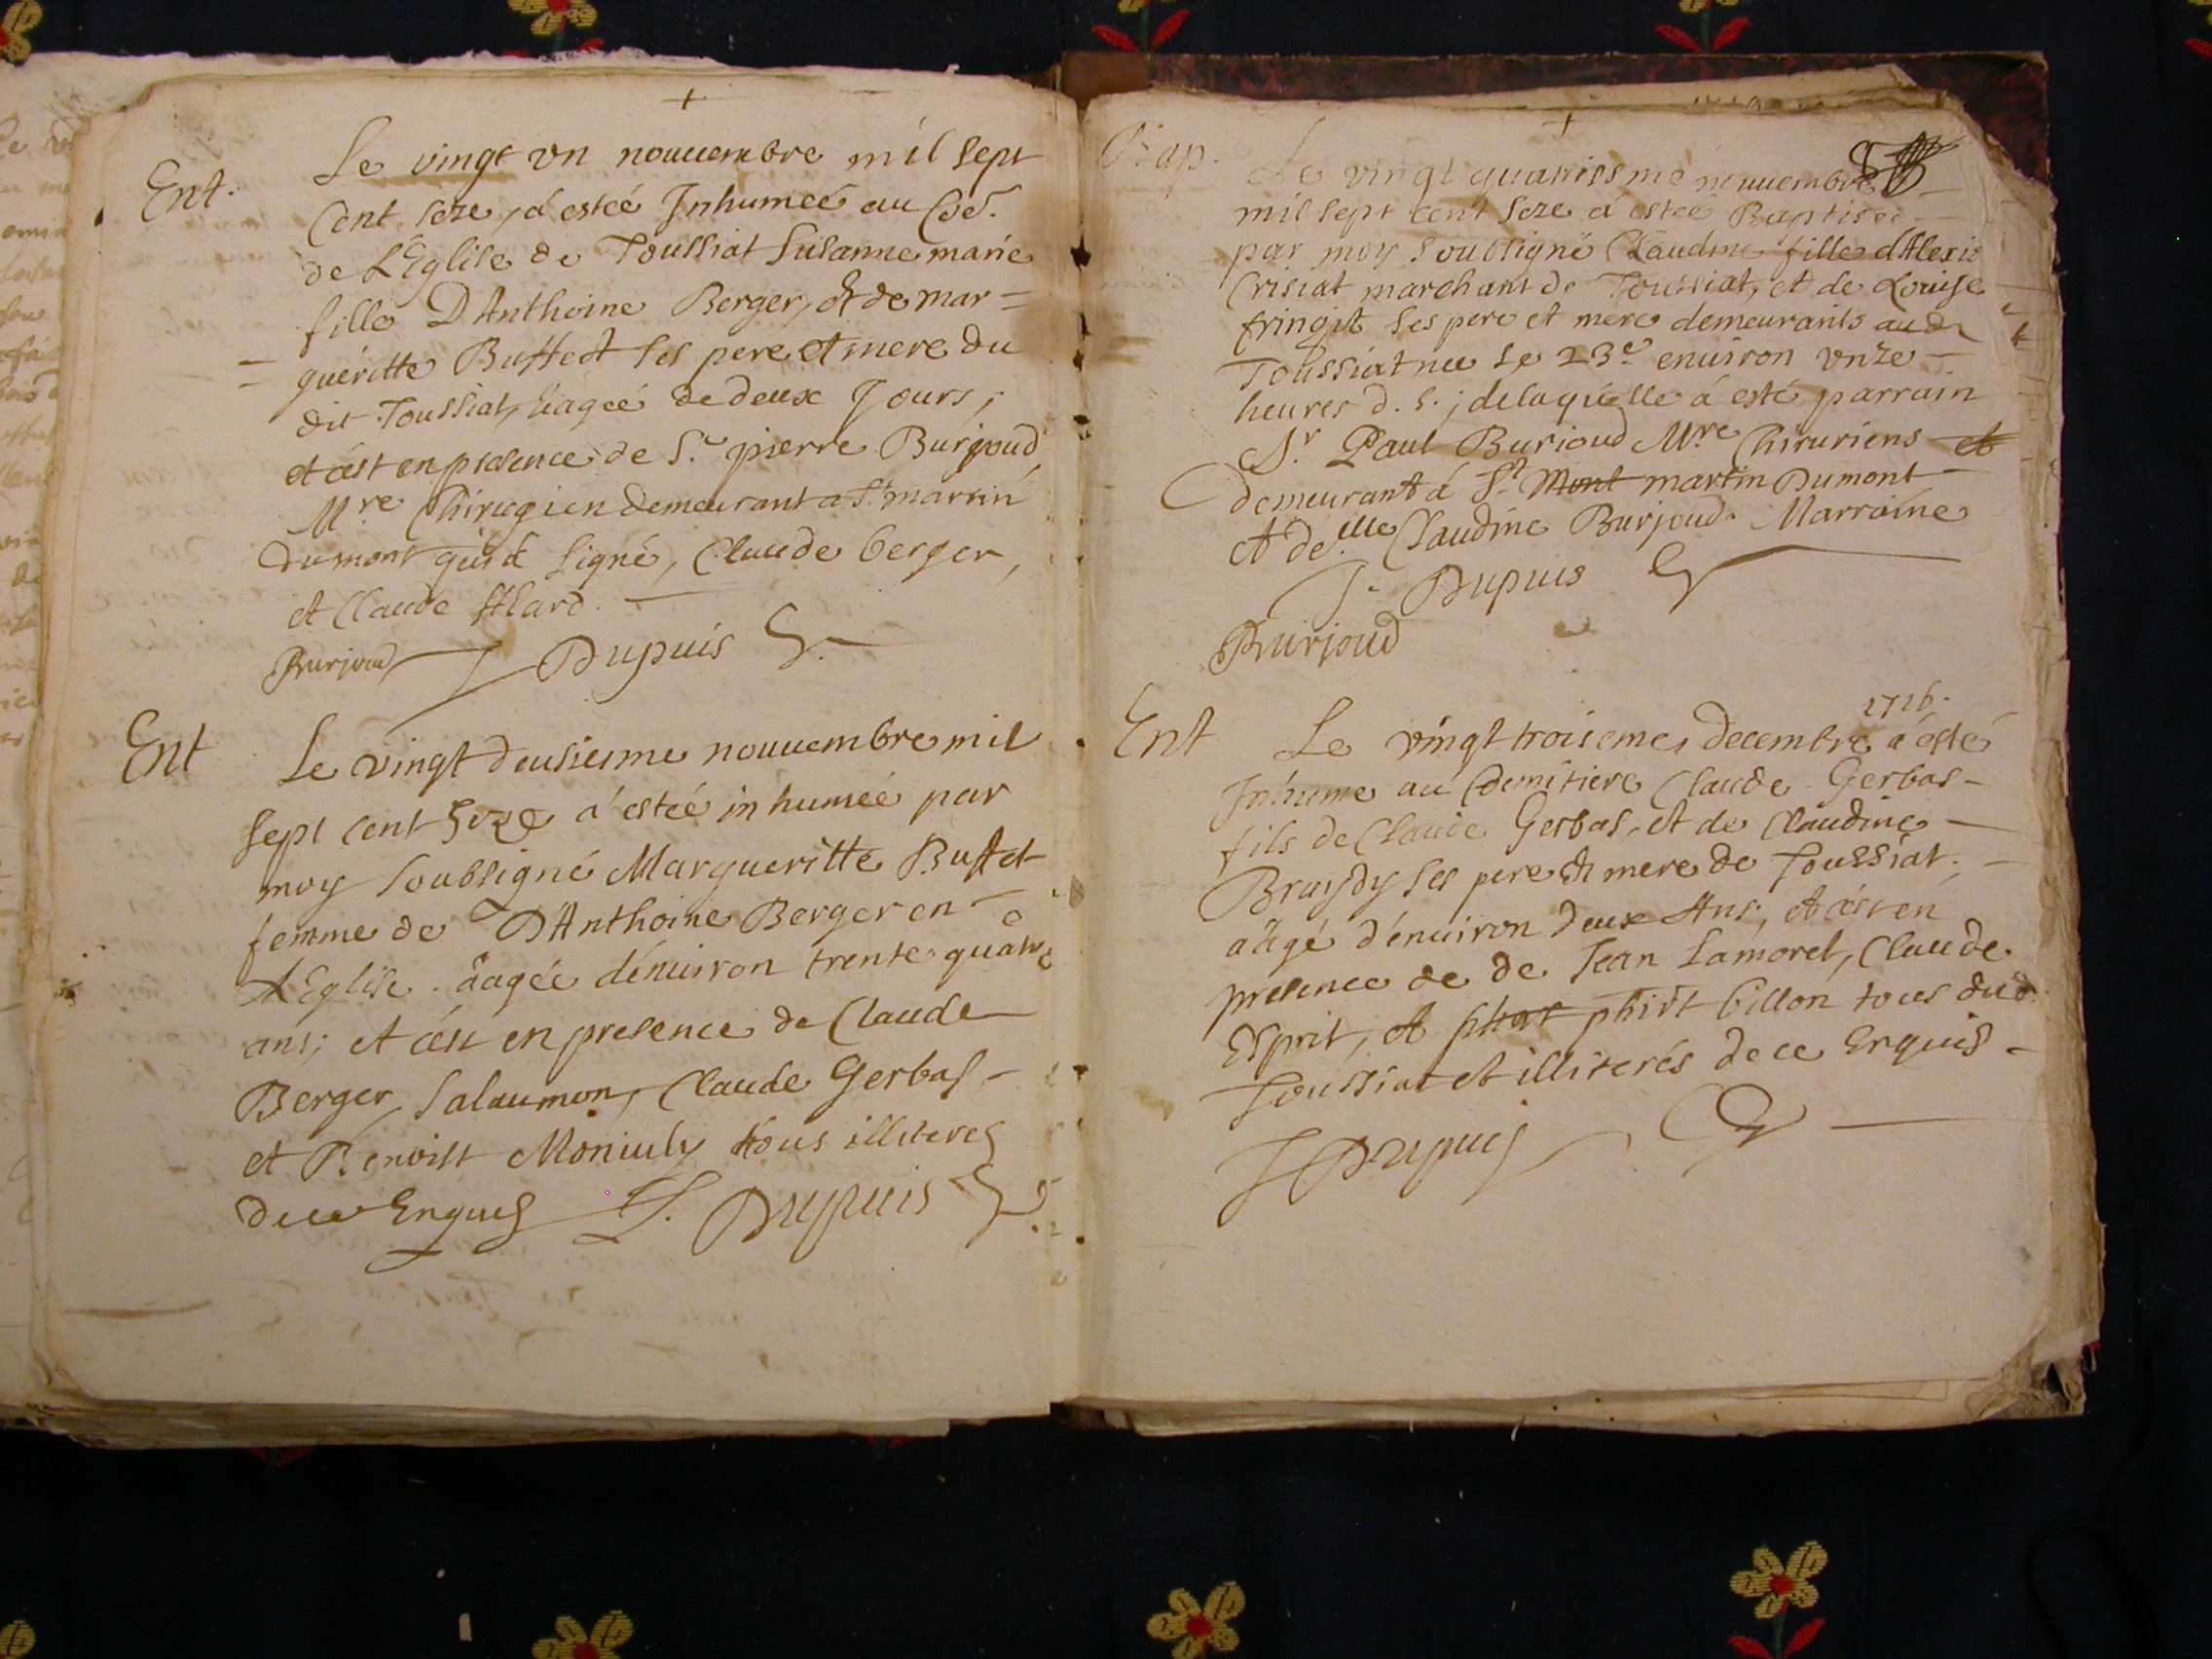 Ent.
Le vingt vn nouuembre mil sept
Cent seze, a estéé Inhumeé au Coe.
de LEglise de Toussiat Susanne marie
fille DAnthoine Berger, et de mar=
=gueritte Buffect ses pere et mere du
dit Toussiat, eágeé de deux Jours,
et c'est en presence de Sr. pierre Burjoud,
Mre Chirugien demeurant a St. martin
dumont qui a signé, Claude berger,
et Claude Alard.
Burjoud J Dupuis
Ent
Le vingt deusiesme nouuembre mil
sept cent Seze a estéé inhumeé par
moy soubsigné Margueritte Buffet
femme de DAnthoine Berger en
LEglise. aagée d'enuiron trente quatre
ans; et c'est en presence de Claude
Berger, Salaumon, Claude Gerbas
et Benoist Moniuly tous illiteres
de ce Enquis J. Dupuis
Bap.
Le vingt quatriesme nouuembre
mil sept cent seze a esteé Baptiseé
par moy soubsigné Claudine fille d'Alexis
Crisiat marchant de Toussiat, et de Louise
fringit ses pere et mere demeurants aud.
Toussiat neé le 23e enuiron vnze
heures d. s.; de laquelle á esté parrain
Sr. Paul Burioud Mre Chiruriens et
demeurant á St. Mont martin Dumont
et deille Claudine Burjoud. Marraine
J. Dupuis
Burjoud
Ent
1716.
Le vingt troisemes decembre a ésté
Inhume au Cemitiere Claude Gerbas
fils de Claude Gerbas, et de Claudine
ses pere et mere de Toussiat,
aágé d'énuiron deux Ans, et c'est en
presence de de Jean Lamorel, Claude
Esprit, et phirt billon tous dud.
Toussiat et illiterés de ce Enquis
J Dupuis